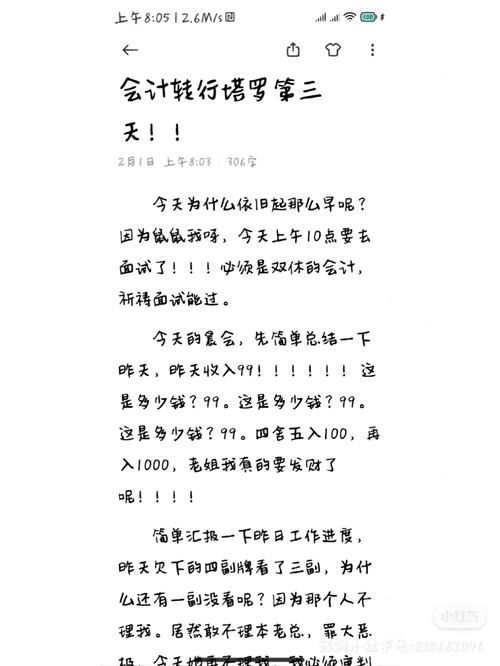 上午8:05|2.6M/s
会计转行塔罗第三
天！！
2月1日 上午8:03 | 306字
今天为什么依旧起那么早呢？
因为鼠鼠我呀，今天上午10点要去
面试了！！！必须是双休的会计，
祈祷面试能过。
今天的晨会，先简单总结一下
昨天，昨天收入99！！！！！！这
是多少钱？99。这是多少钱？99。
这是多少钱？99。四舍五入100，再
入1000，老姐我真的要发财了
呢！！！！
简单汇报一下昨日工作进度，
昨天欠下的四副牌看了三副，为什
么还有一副没看呢？因为那个人不
理我。居然敢不理本老总，罪大恶
极，今天她再不理我，我必须审判
小红书
小红书号:825682096